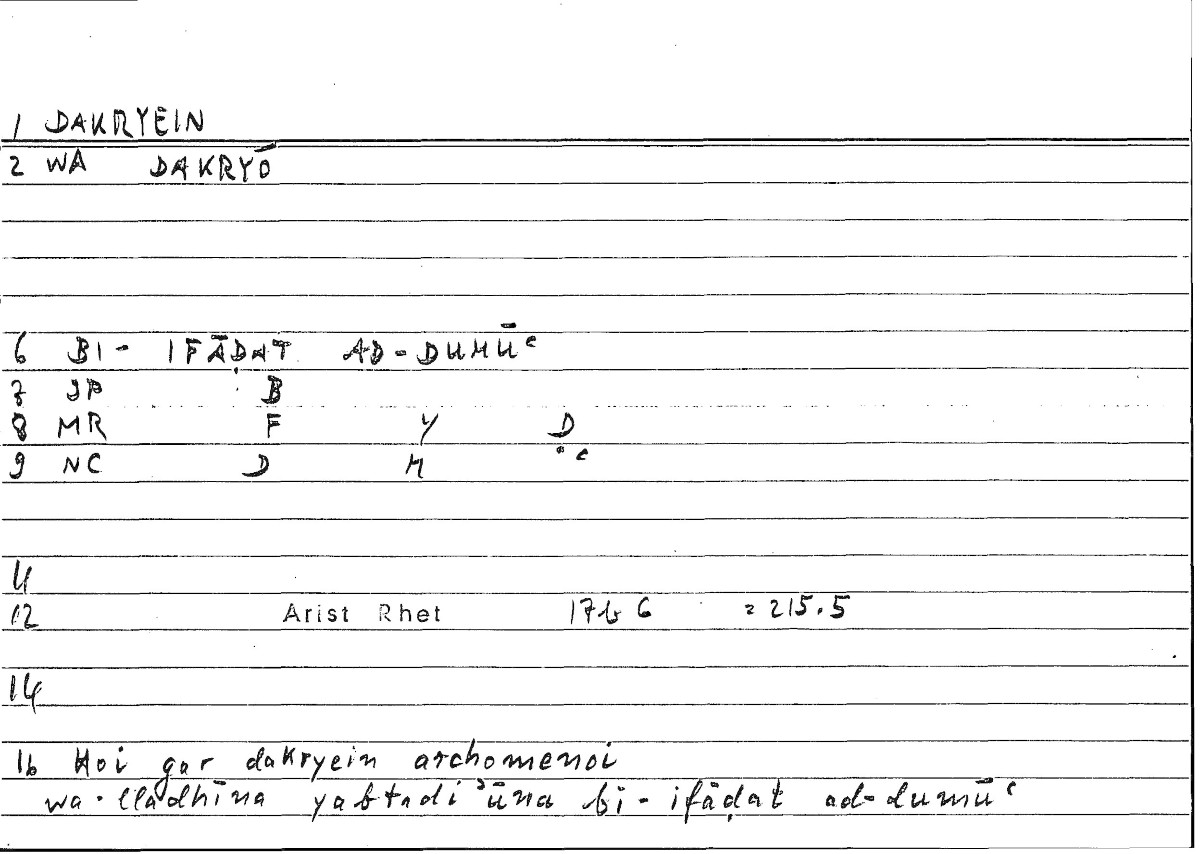 1 DAKRYEIN
2 WA DAKRYŌ
6 BI- IFĀḌAT AD-DUMŪʿ
7 JP B
8 MR F Y Ḍ
9 NC D M ʿ
11
12 Arist Rhet 17b6 = 215.5
14
16 Hoi gar dakryein archomenoi
wa-lladhīna yabtadiʾūna bi-ifāḍat ad-dumūʿ